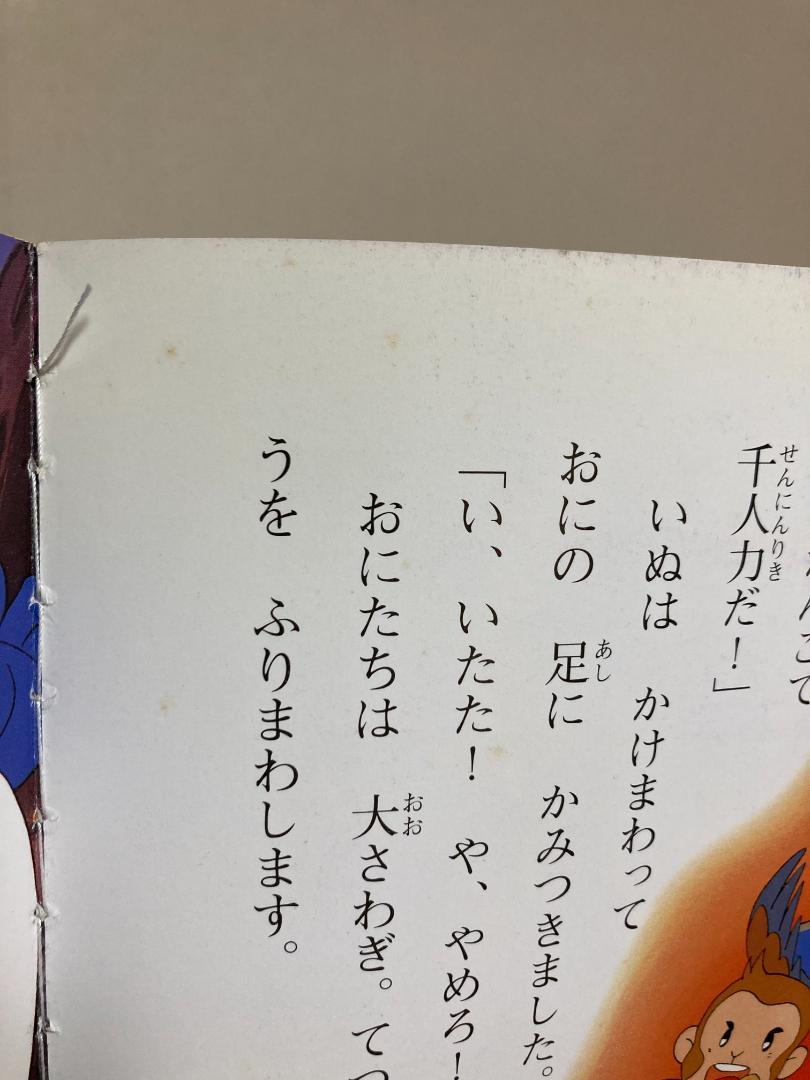 千人力だ！」
いぬは かけまわって
おにの 足に かみつきました。
「い、いたた！ や、やめろ！
おにたちは 大さわぎ。てつ
うを ふりまわします。
せんにんりき
あし
おお